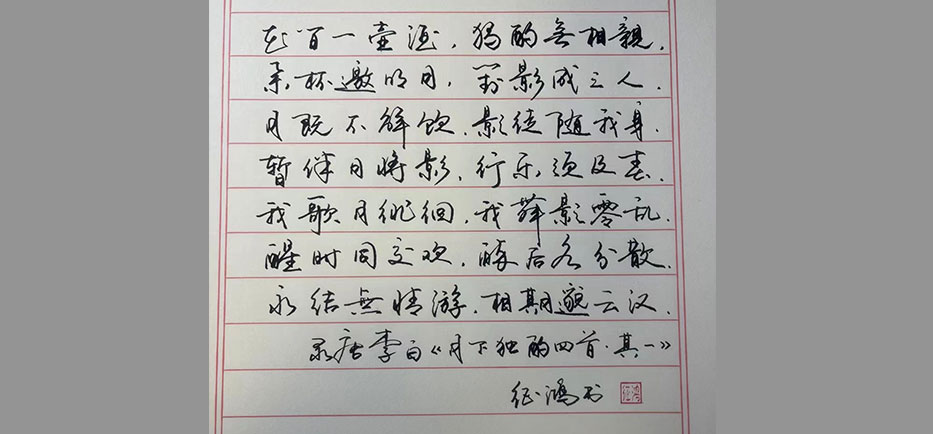 花间一壶酒，独酌无相親，
举杯邀明月，對影成三人．
月既不解饮．影徒随我身．
暂伴月将影，行乐须及春．
我歌月徘徊，我舞影零乱
醒时同交欢．醉后各分散．
永结無情游．相期邈云汉．
录唐李白《月下独酌四首·其一》
征鸿书